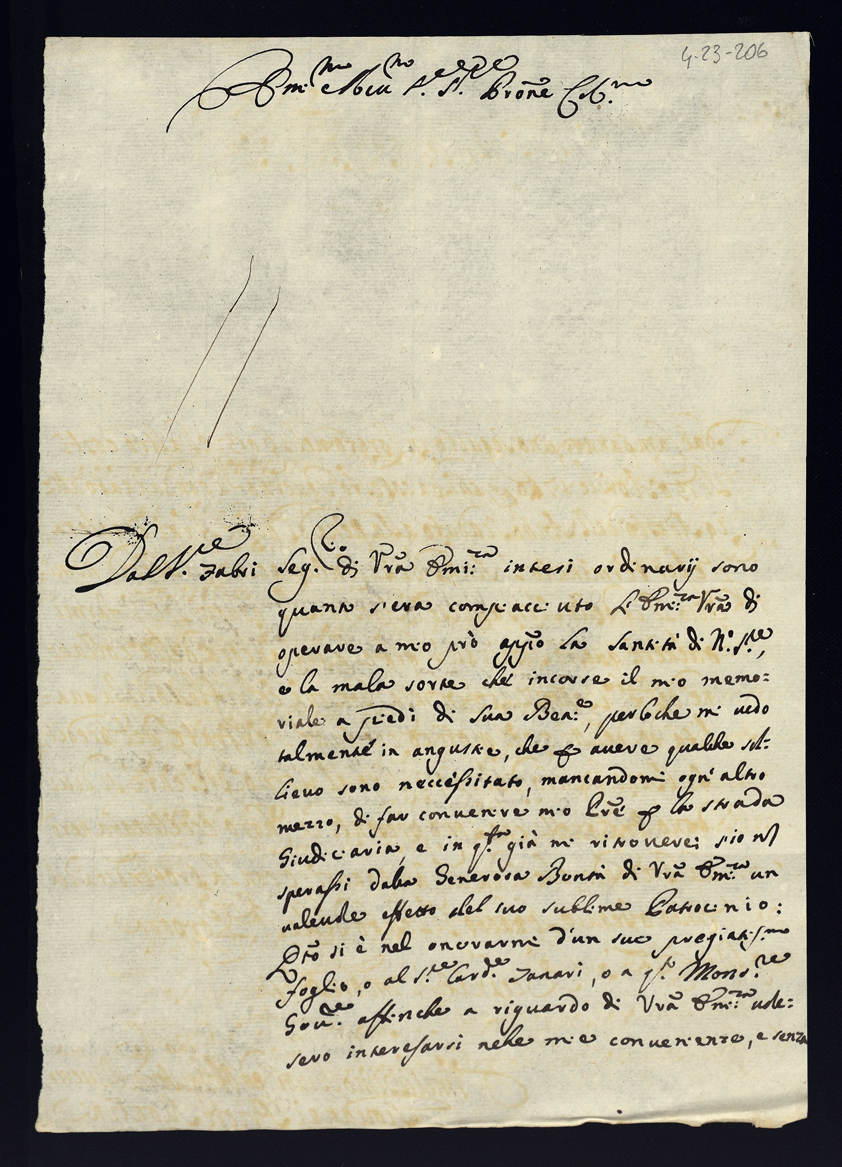 4-23-206
Em:mo e Rev:mo S.r S.r Prōne Col.mo
Dal S.re Fabri Seg.rio di Vrā Emi:za intesi ordinarij sono
quanto s'era compiacciuto L'Em:za Vrā di
operare a mio prò appo la Santità di N.o S.re,
e la mala sorte che incorse il mio memo=
riale a piedi di sua Bea:e, perloche mi vedo
talmente in angustie, che p avere qualche sol=
lievo sono neccessitato, mancandomi ogn'altro
mezzo, di far convenire mio Prē p la strada
Giudiciaria, e in q.sta già mi ritroverei s'io nō
sperassi dalla Generosa Bontà di Vrā Em:za un
valevole effetto del suo sublime Patrocinio:
Qto si è nel onorarmi d'un suo pregiatis.mo
foglio, o al S.re Card.e Zanari, o a q.to Mons.re
Gov.re affinche a riguardo di Vrā Em:za vole=
sero interessarsi nelle mie convenienze, e senza